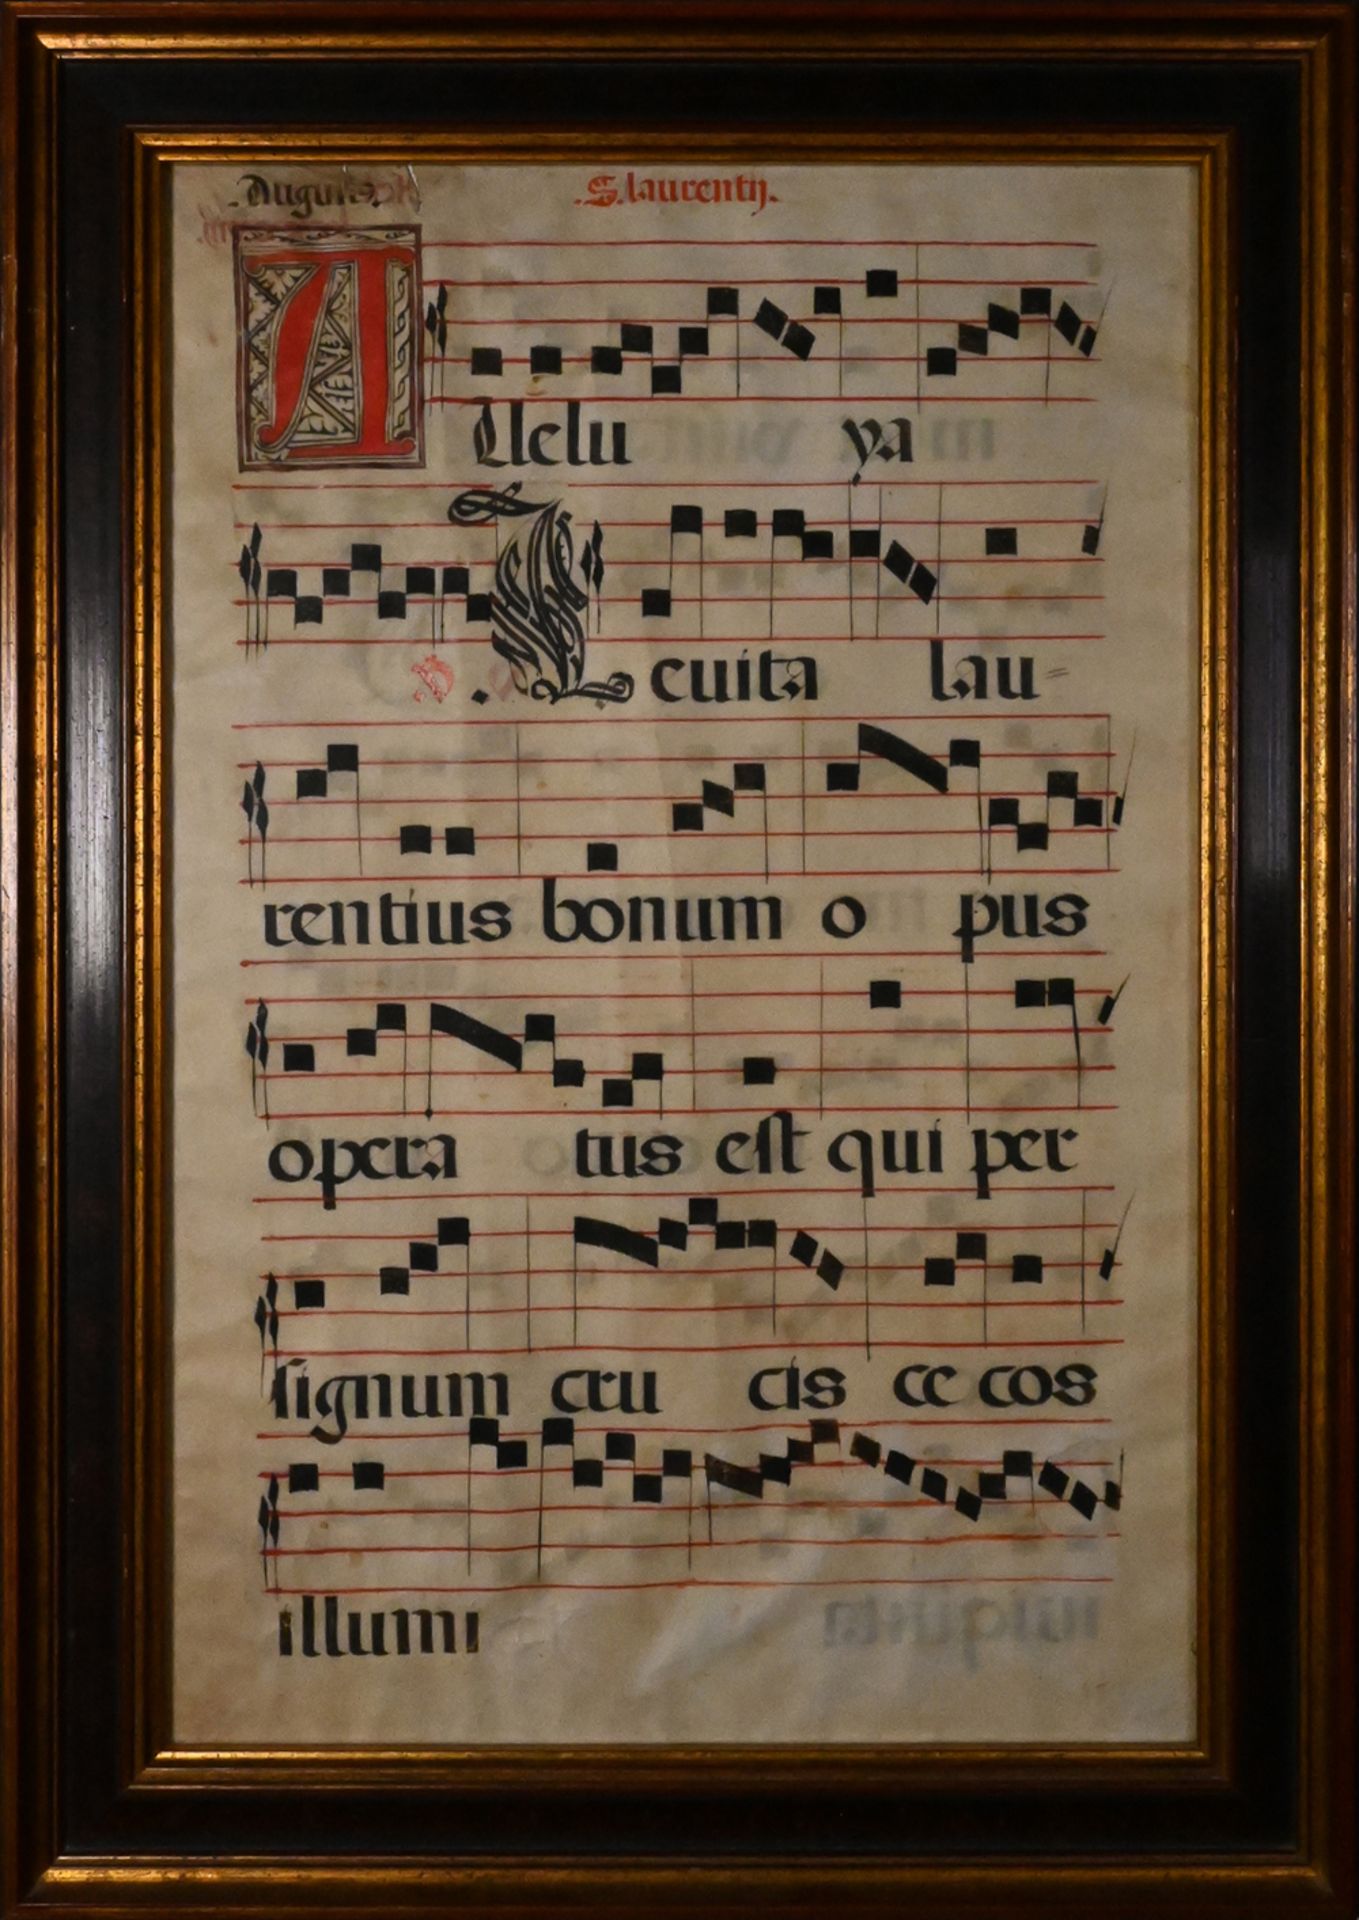 .Augusti. .S. laurentij.
Alleluya
℣. Leuita lau=
rentius bonum opus
operatus est qui per
signum crucis cecos
illumi